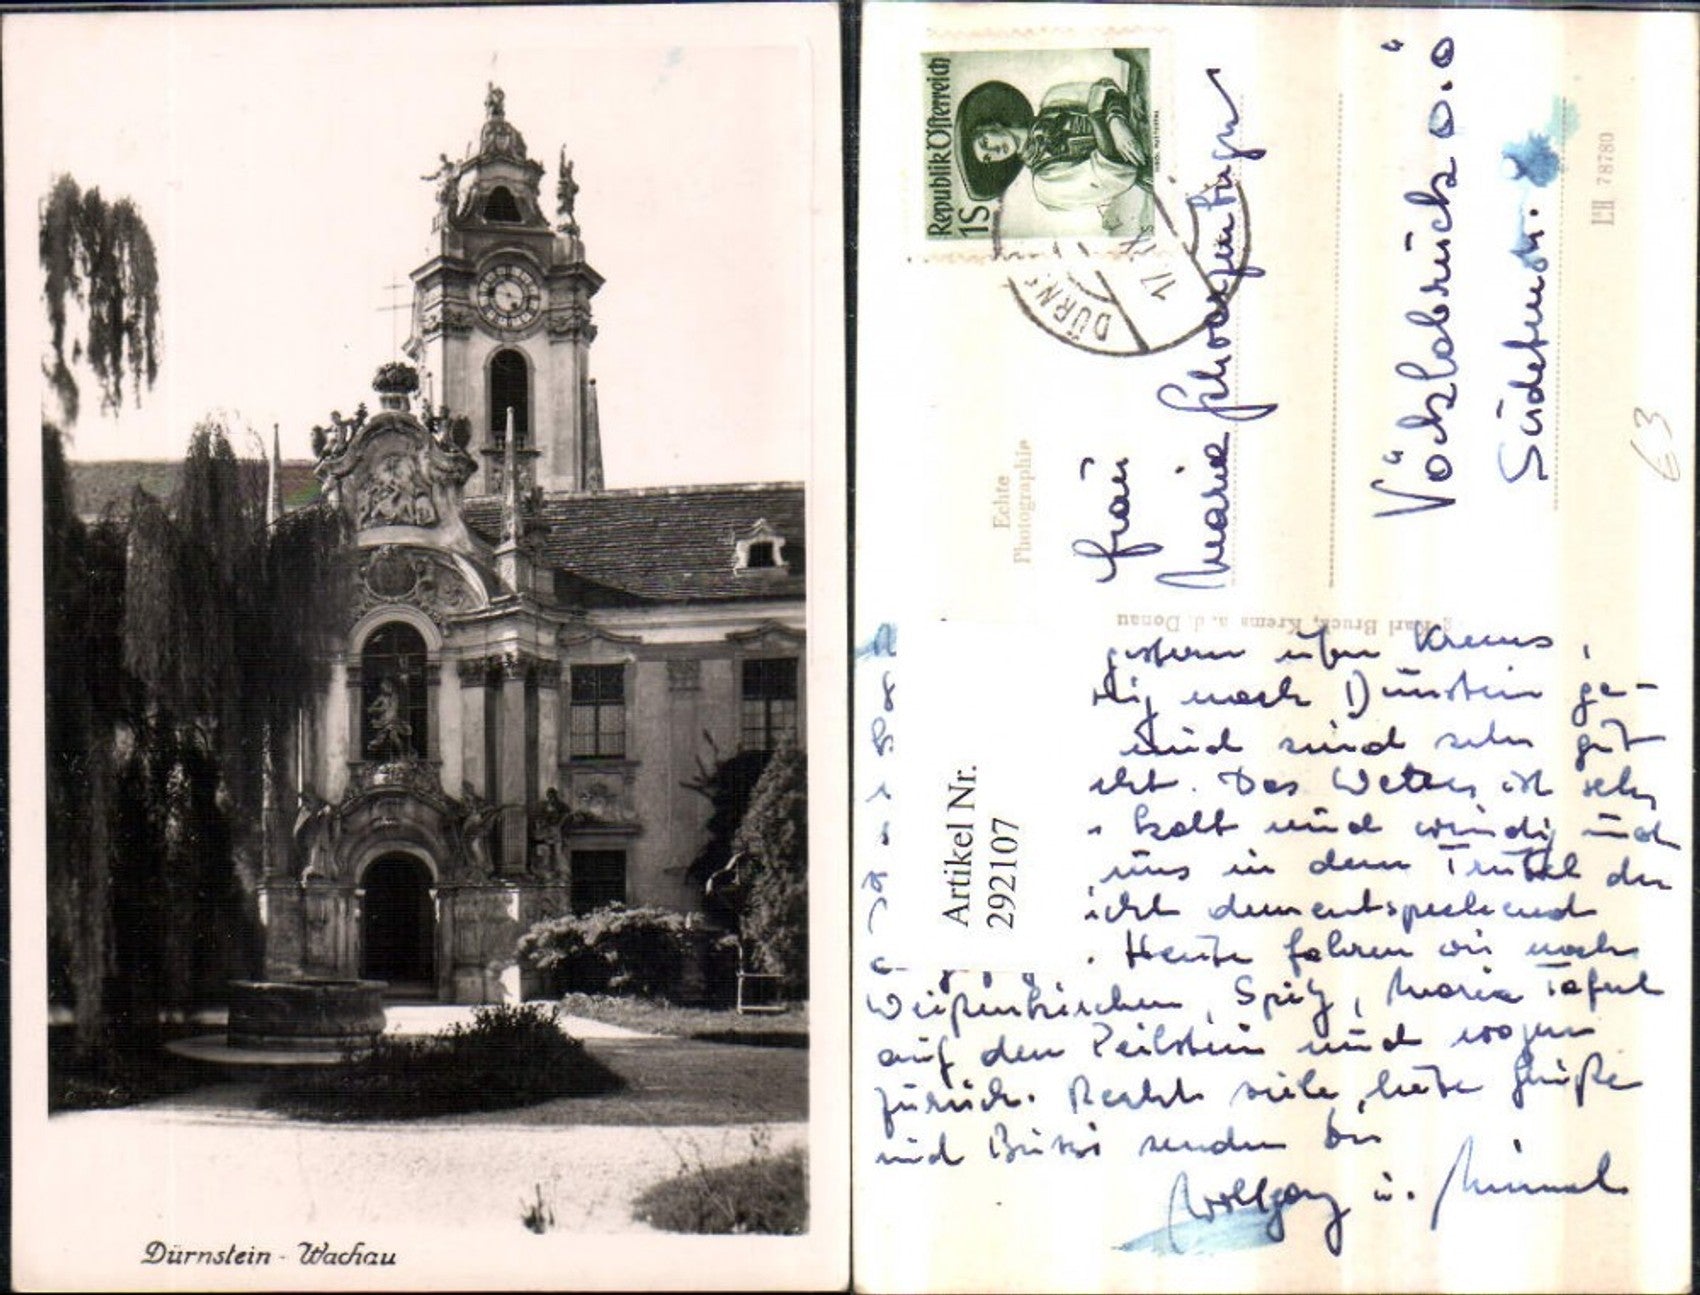 Dürnstein - Wachau
Republik Österreich
1S
DÜRNS
17. IX
Echte
Photographie
Frau
Maria
Vöcklabruck O.Ö
Südetmstr.
LH 78780
63
Karl Bruck, Krems a. d. Donau
Artikel Nr.
292107
gestern über Krems,
nach Dürnstein ge-
und sind sehr gut
. Das Wetter ist sehr
kalt und windig und
uns in dem Trubel der
dementsprechend
. Heute fahren wir nach
Weißenkirchen, Spitz, Maria Taferl
auf den und morgen
zurück. Recht viele liebe Grüße
und Bussi senden Dir
Wolfgang u.